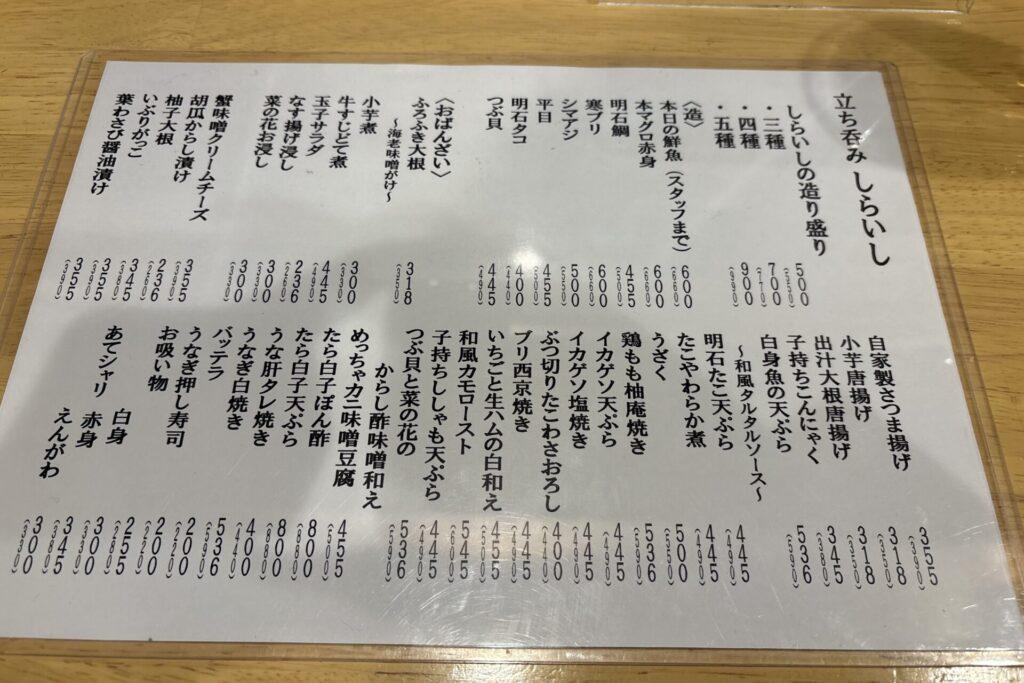 立ち呑み しらいし
しらいしの造り盛り
・三種 500(550)
・四種 700(770)
・五種 900(990)
〈造〉
本日の鮮魚(スタッフまで) 600(660)
本マグロ赤身 600(660)
明石鯛 455(500)
寒ブリ 600(660)
シマアジ 500(550)
平目 455(500)
明石タコ 400(440)
つぶ貝 445(490)
〈おばんざい〉
ふろふき大根 318(350)
~海老味噌がけ~
小芋煮 300(330)
牛すじどて煮 445(490)
玉子サラダ 236(260)
なす揚げ浸し 300(330)
菜の花お浸し 300(330)
蟹味噌クリームチーズ 355(390)
胡瓜からし漬け 236(260)
柚子大根 345(380)
いぶりがっこ 355(390)
葉わさび醤油漬け 355(390)
自家製さつま揚げ 355(390)
小芋唐揚げ 318(350)
出汁大根唐揚げ 318(350)
子持ちこんにゃく 345(380)
白身魚の天ぷら 536(590)
~和風タルタルソース~
明石たこ天ぷら 445(490)
たこやわらか煮 445(490)
うざく 500(550)
鶏もも柚庵焼き 536(590)
イカゲソ天ぷら 445(490)
イカゲソ塩焼き 445(490)
ぶつ切りたこわさおろし 400(440)
ブリ西京焼き 445(490)
いちごと生ハムの白和え 455(500)
和風カモロースト 545(600)
子持ちししゃも天ぷら 445(490)
つぶ貝と菜の花の
からし酢味噌和え 536(590)
めっちゃカニ味噌豆腐 455(500)
たら白子ぽん酢 800(880)
たら白子天ぷら 800(880)
うな肝タレ焼き 400(440)
うなぎ白焼き 536(590)
バッテラ 200(220)
うなぎ押し寿司 200(220)
お吸い物 255(280)
あてシャリ 白身 300(330)
赤身 345(380)
えんがわ 300(330)